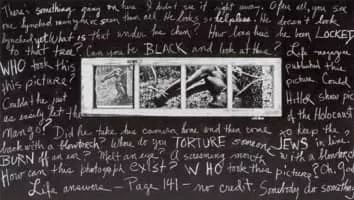 There's something going on here. I didn't see it right away. After all, you see
one lynched man you've seen them all. He looks so helpless. He doesn't look
lynched yet. What is that under his chin? How long has he been LOCKED
to that tree? Can you be BLACK and look at this? Life magazine
WHO took this published this
this picture? picture. Could
Couldn't he just Hitler show pics
as easily let the of the Holocaust
man go? Did he take his camera home and then come to keep the
back with a blowtorch? Where do you TORTURE someone JEWS in line.
BURN off an ear? Melt an eye? A screaming mouth with a blowtorch
How can this photograph exist? WHO took this picture? Oh, god
Life answers – Page 141 – no credit. Somebody do something